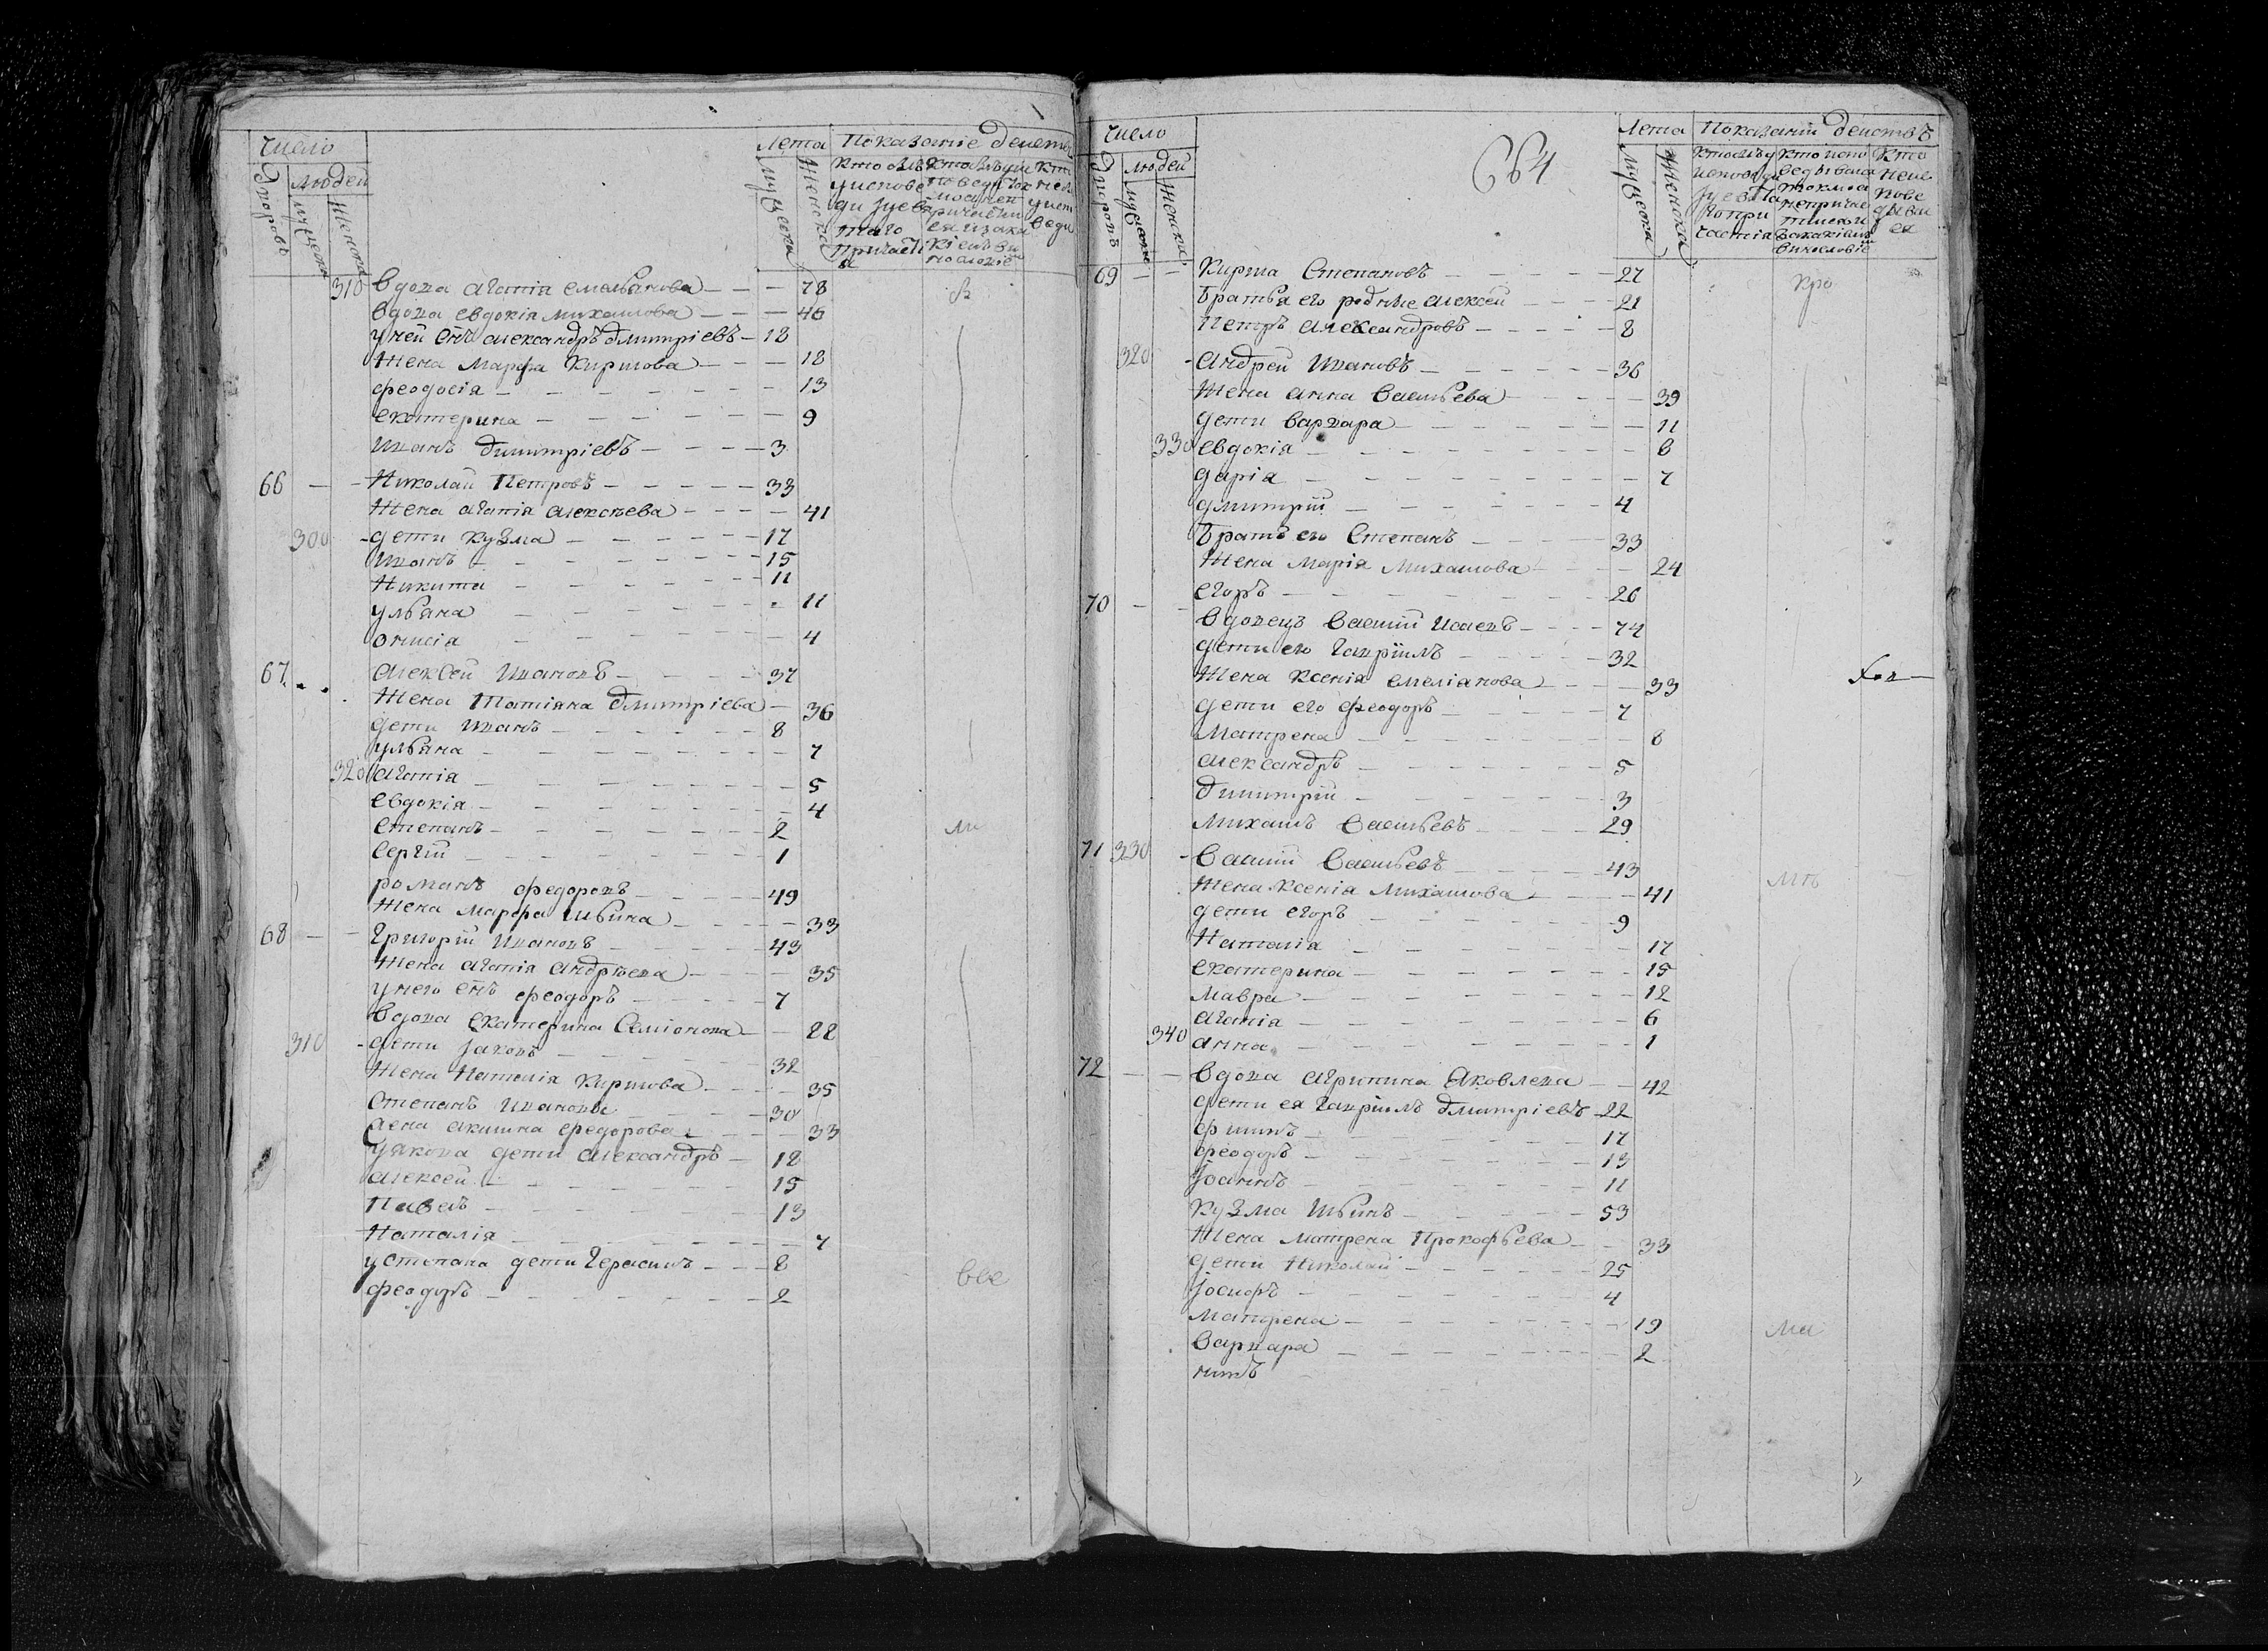 число
Дворовъ
людей
мужеска
женска
Лета
мужеска
женска
Показание действ
310 вдова агапія емельянова 78
вдова евдокія михаилова 46
у ней снъ александръ дмитріевъ 18
жена марфа кирилова 18
феодосія 13
екатерина 9
иванъ димитріевъ 3
66 Николай Петровъ 33
жена агапія алексѣева 41
300 дети кузма 17
иванъ 15
никита 11
ульяна 11
онисія 4
67 алексей ивановъ 37
жена татіяна дмитріева 36
дети иванъ 8
ульяна 7
320 агапія 5
евдокія 4
степанъ 2
сергій 1
романъ федоровъ 49
жена марфа ильина 33
68 григорій ивановъ 43
жена агапія андрѣева 35
у него снъ феодоръ 7
вдова екатерина семіонова 22
310 дети яковъ 32
жена наталія кирилова 35
степанъ ивановъ 30
жена акилина федорова 33
у якова дети александръ 12
алексей 15
павелъ 13
наталія 7
у степана дети герасимъ 8
феодоръ 2
все
число
Дворовъ
людей
мужеска
женска
664
Лета
мужеска
женска
Показаній действъ
69 кирила степановъ 27
братья его родные алексей 21
петръ александровъ 8
320 андрей ивановъ 36
жена анна васильева 39
дети варвара 11
330 евдокія 8
дарія 7
дмитрій 4
братъ его степанъ 33
жена марія михаилова 24
егоръ 26
70 вдовецъ василий исаевъ 74
дети его гавріилъ 32
жена ксенія емеліанова 33
дети его феодоръ 7
матрена 8
александръ 5
димитрій 3
михаилъ васильевъ 29
71 330 василий васильевъ 43
жена ксенія михаилова 41
дети егоръ 9
наталія 17
екатерина 15
мавра 12
агапія 6
340 анна 1
72 вдова агрипина яковлева 42
дети ея гавріилъ дмитріевъ 22
филипъ 17
феодоръ 13
іоаннъ 11
кузма ильинъ 53
жена матрена прокофьева 33
дети николай 25
іосифъ 4
матрена 19
варвара 2